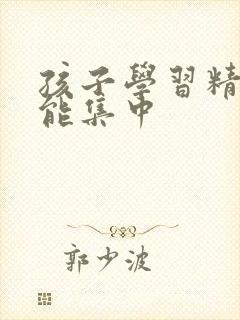 孩子學習精
能集中
郭少波